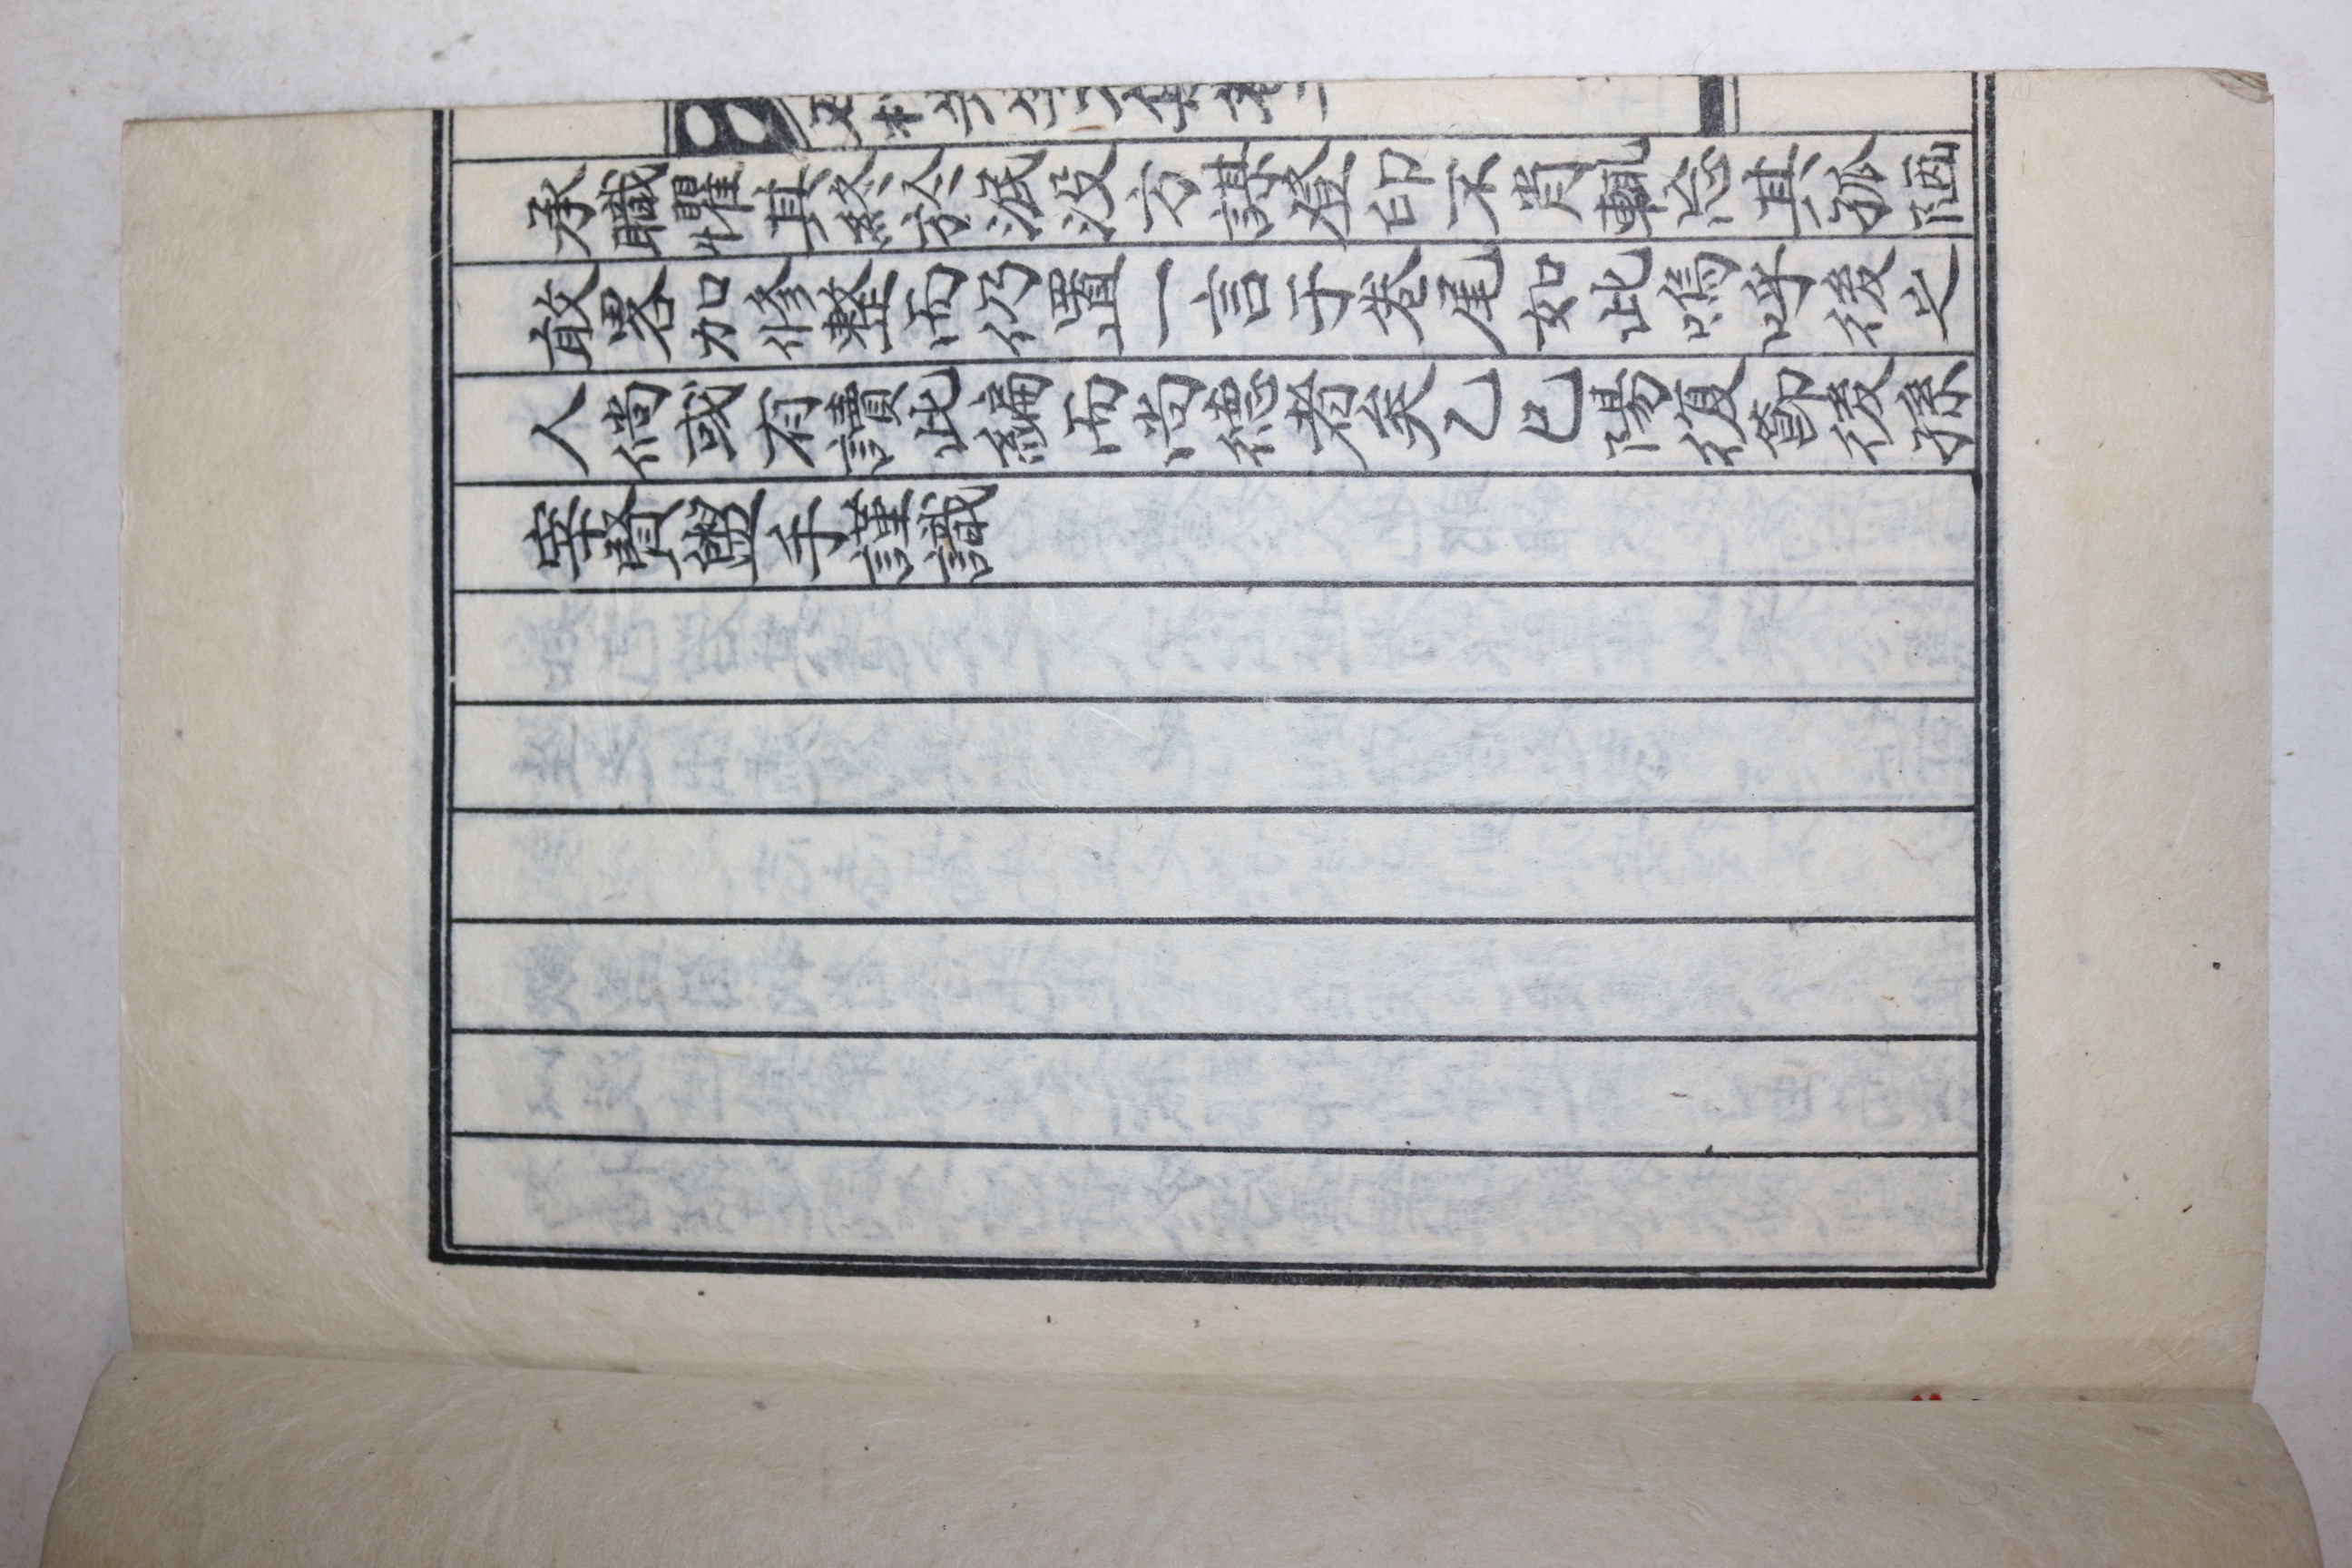 承職懼其終於泯没方謀登印不肖輒忘其孤陋
敢畧加修整而仍置一言于卷尾如此嗚呼後之
人倘或有讀此編而尚德者矣乙巳陽復節後孫
宰賢盥手謹識
先生文集卷二